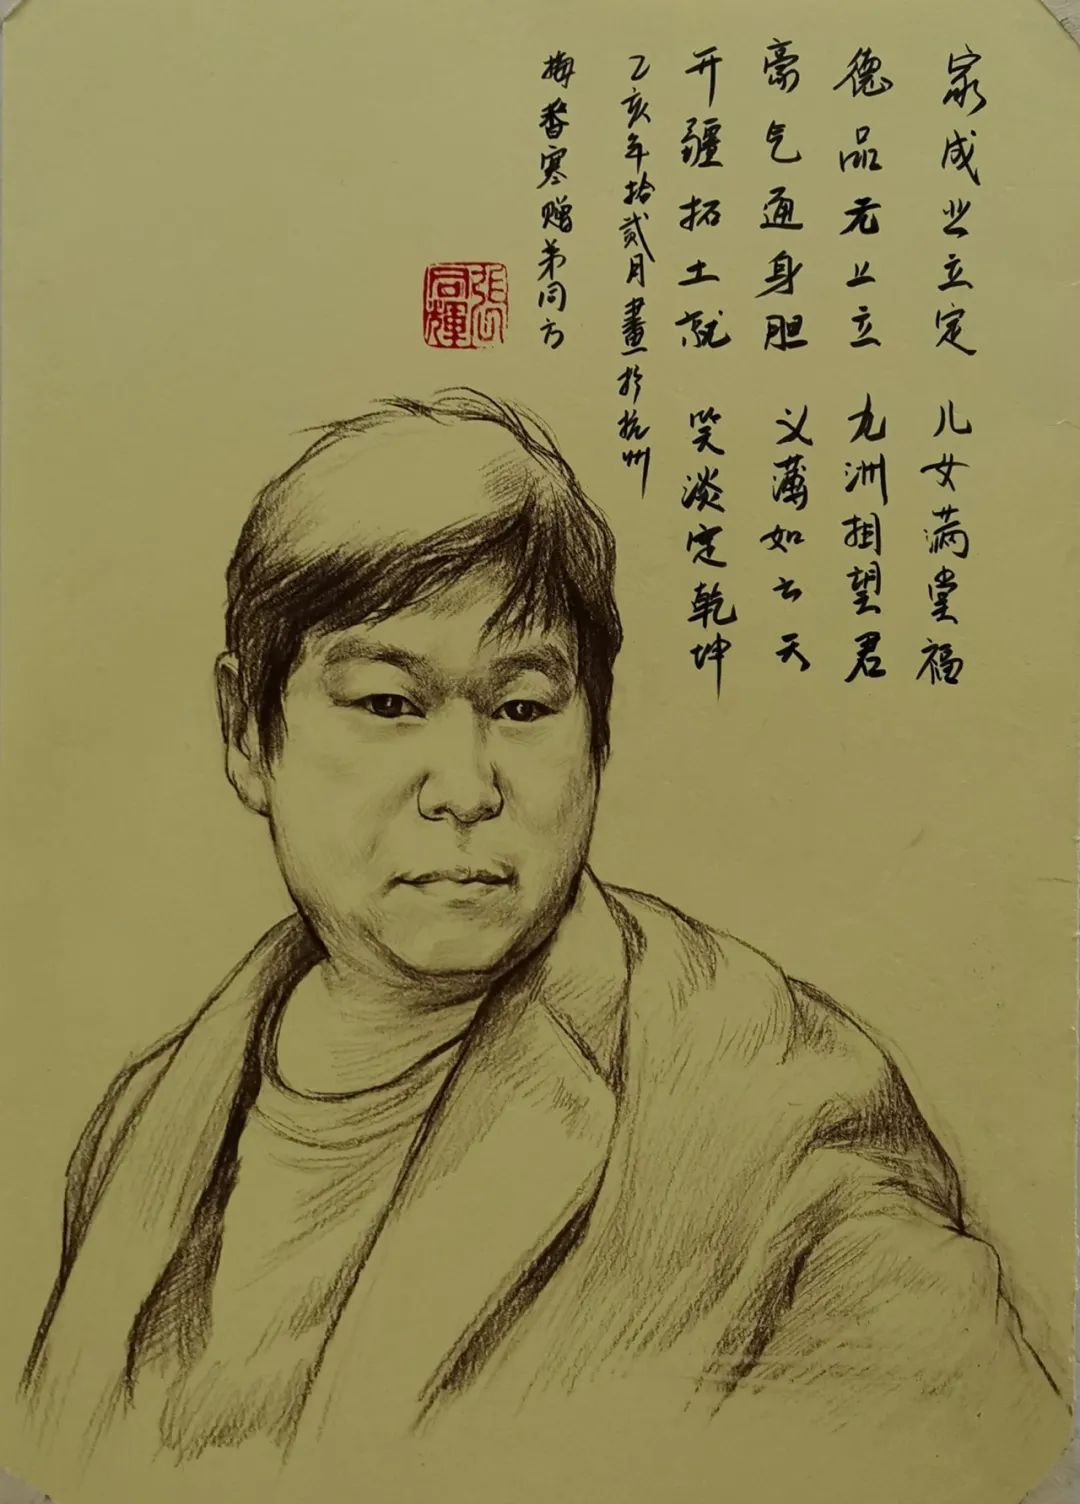 家成业立定 儿女满堂福
德品元上立 九洲相望君
豪气通身胆 义薄如云天
开疆拓土就 笑淡定乾坤
乙亥年拾贰月畫於杭州
梅香寒赠弟同方
张同輝